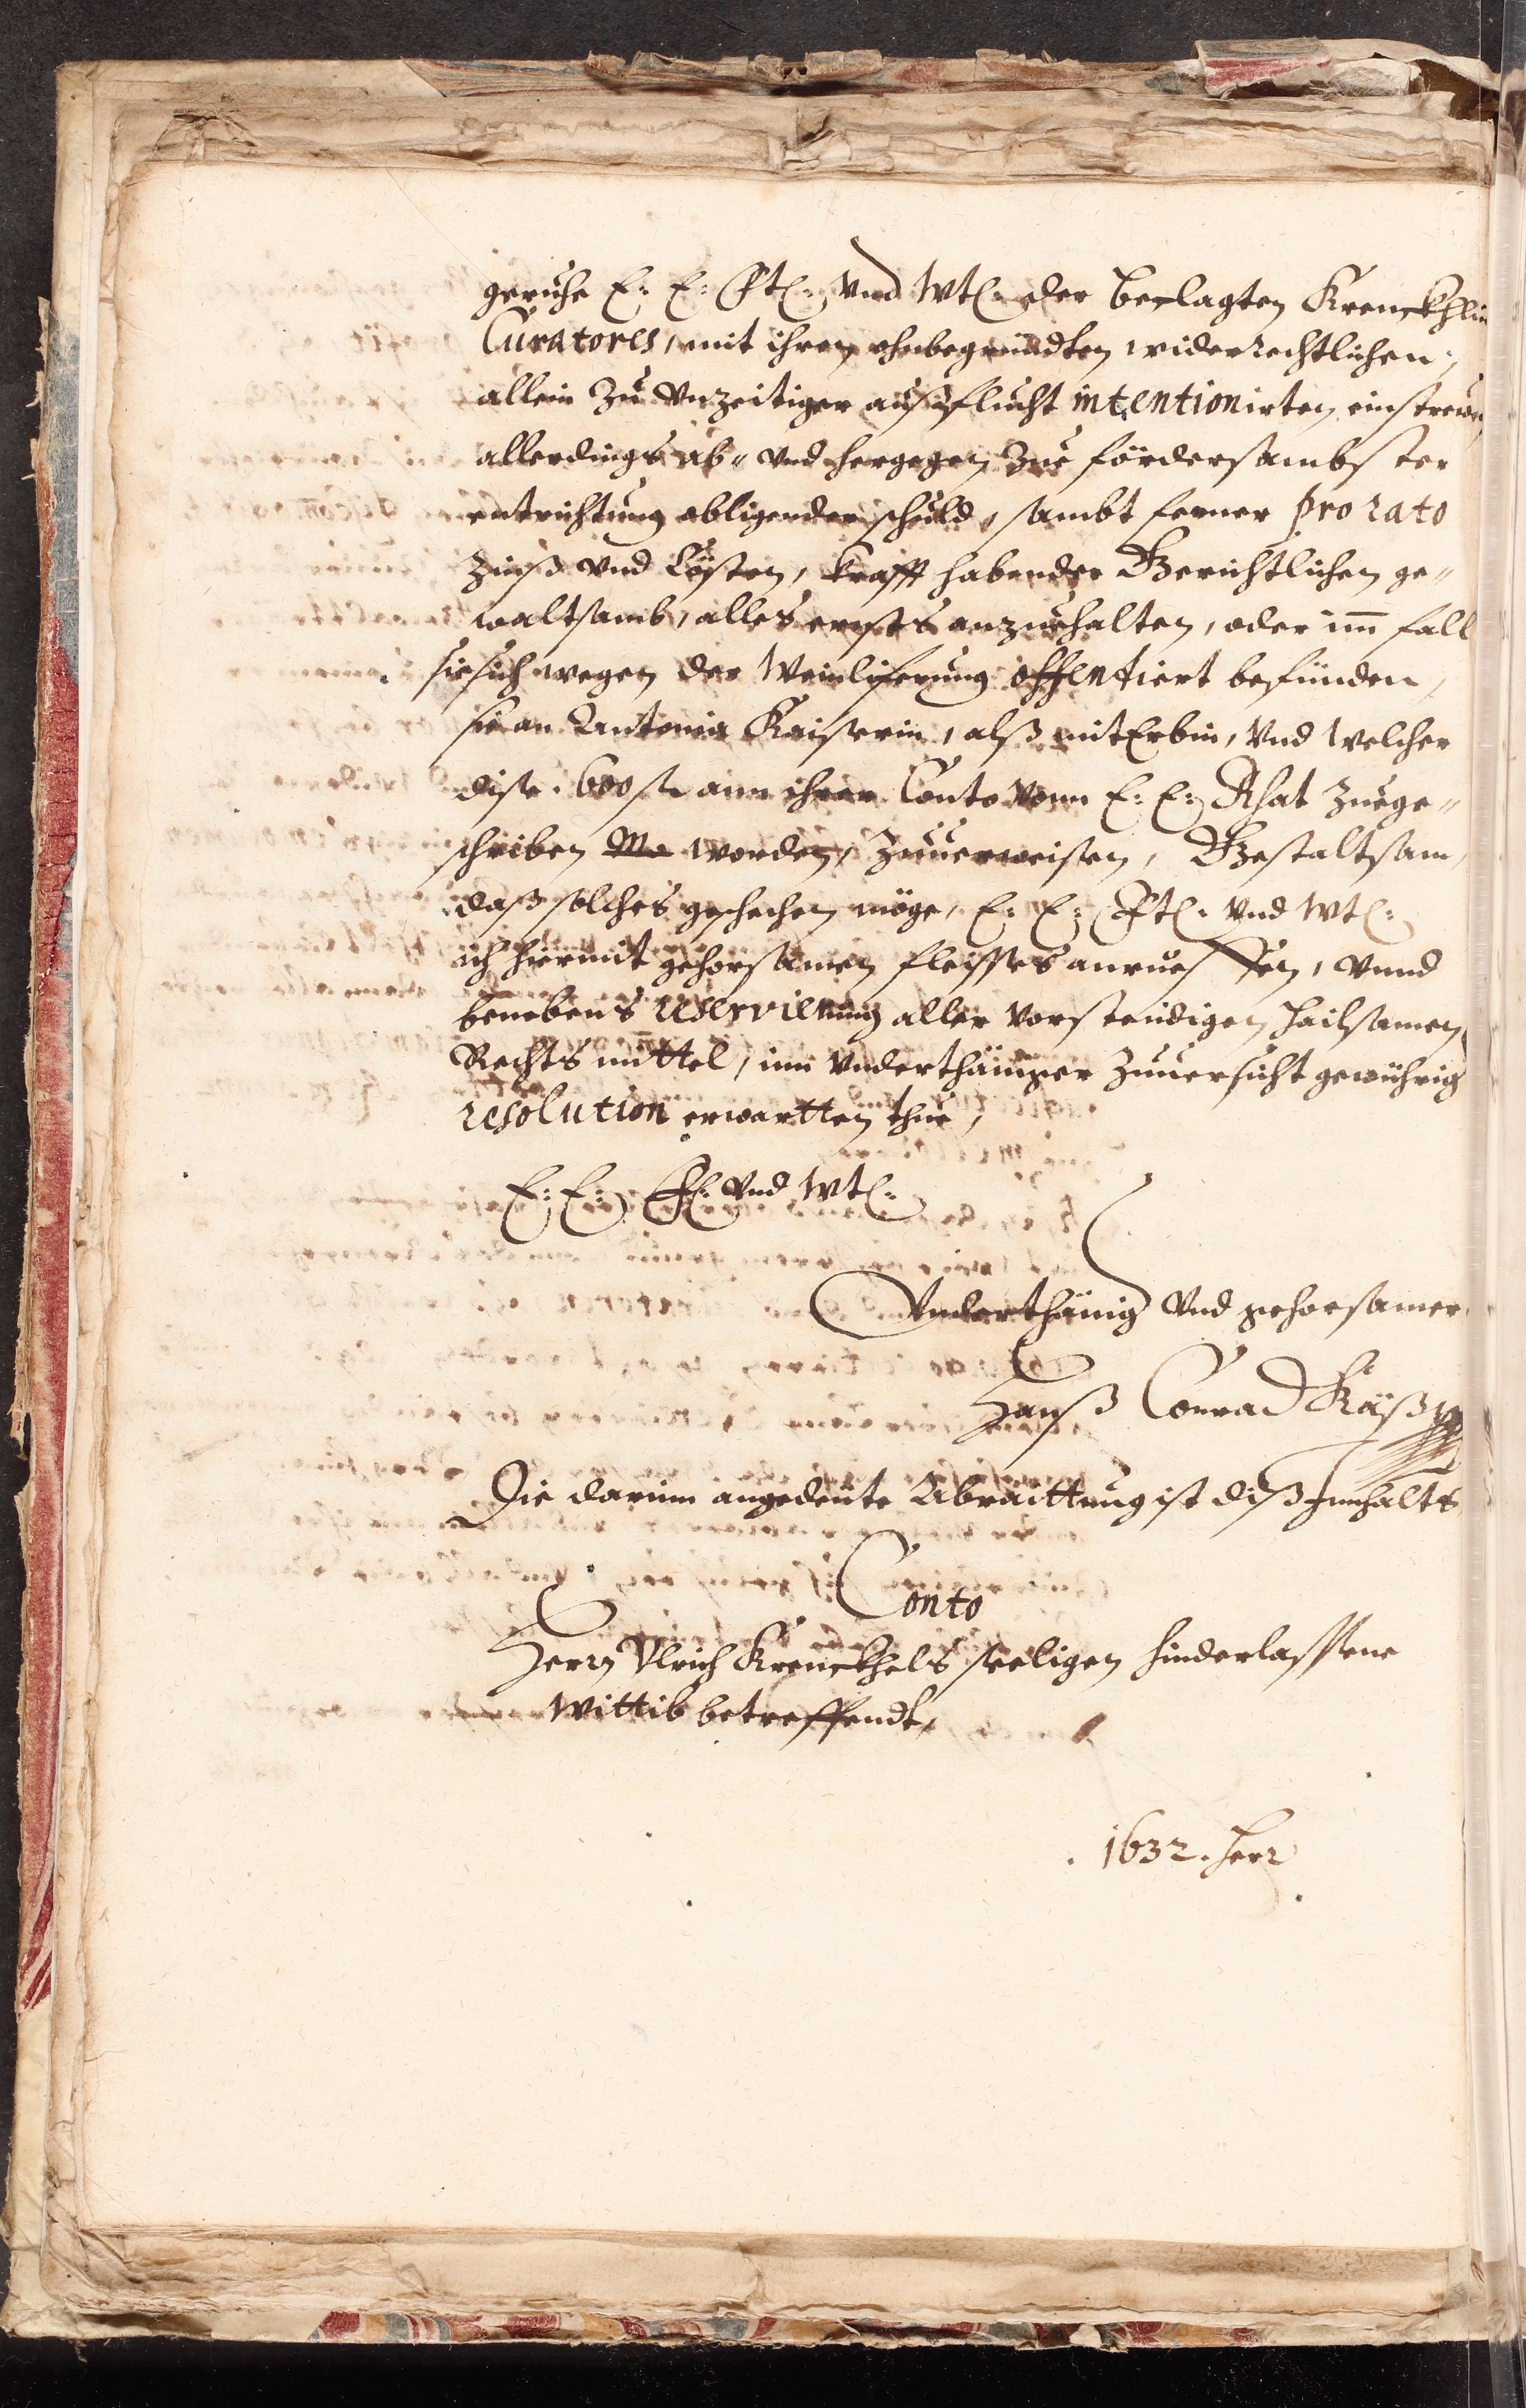 geruhe E: E: Frl: vnd Wtl: der beclagten Krenckhlin
Curatores, mit ihren ohnbegründten widerrechtlichen,
allein zu vnzeitiger außflucht intentionirten einstrewen
allerdings ab- vnd hergegen zue fördersambster
entrichtung obligender schuld, sambt ferner pro rato
Zinß vnd Cösten, krafft habender Gerichtlichen ge-
waltsamb, alles ernsts anzuehalten, oder im̄ fall
sie sich wegen der Weinliferung offentiert befünden,
sie an Antonia Kaiserin, alß mitErbin, vnd welcher
dise 600 fl ann ihrer Conto vonn E: E: Rhat zuege-
schriben worden, zuuerweisen, Gestaltsam,
daß solches geschehen möge, E: E: Frl: vnd Wtl:
ich hiermit gehorsamen fleisses anrueffen, vnnd
benebens reservierung aller vorstendigen hailsamen
Rechts mittel, inn vnderthäniger zuuersicht gewührig
resolution erwartten thue,
E: E: Frl: vnd Wtl:
Vnderthänig vnd gehorsamer
Hanß Conrad Käß
Die darinn angedeute Abraittung ist diß Innhalts
Conto
Herrn Vlrich Krenckhels seeligen hinderlassene
Wittib betreffendt,
1632. Herr